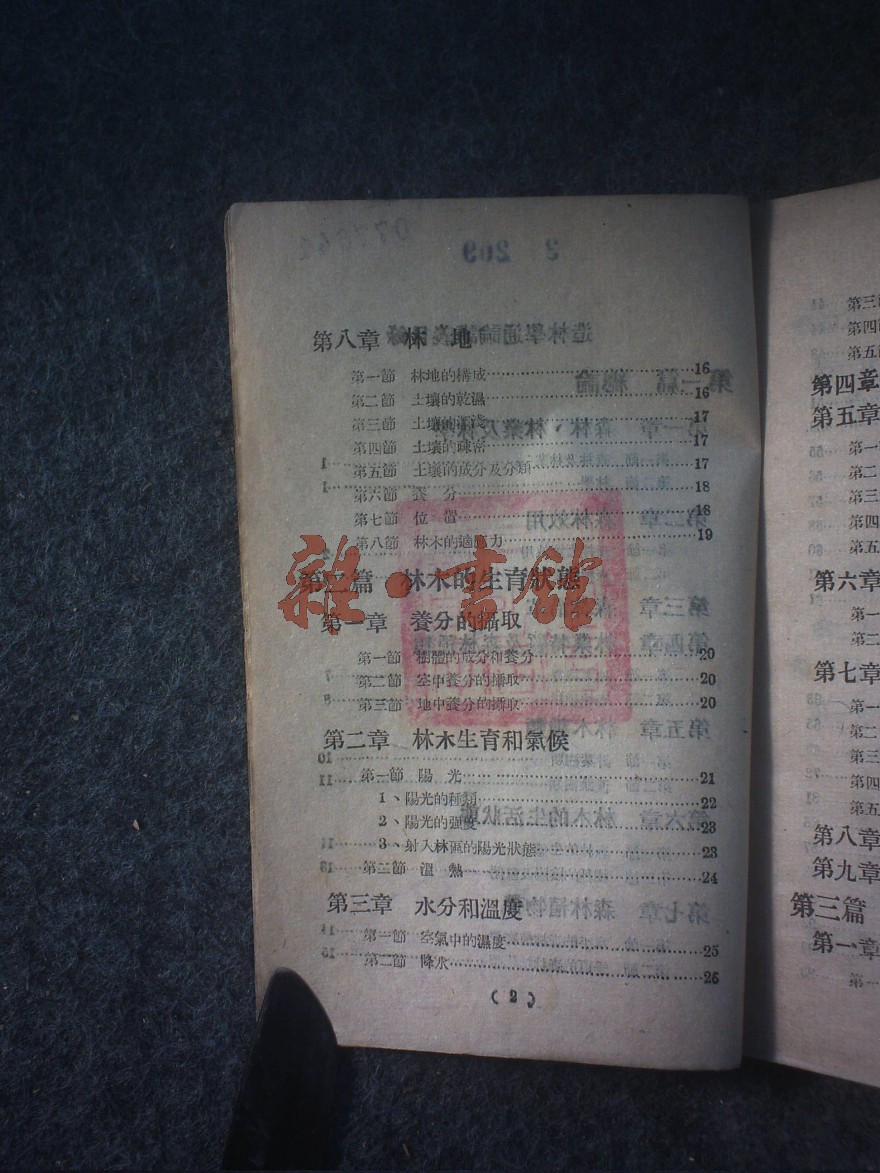 第八章 林 地
第一節 林地的構成 16
第二節 土壤的乾濕 16
第三節 土壤的深淺 17
第四節 土壤的疎密 17
第五節 土壤的成分及分類 17
第六節 養 分 18
第七節 位 置 18
第八節 林木的適應力 19
第二篇 林木的生育狀態
第一章 養分的攝取
第一節 樹體的成分和養分 20
第二節 空中養分的攝取 20
第三節 地中養分的攝取 20
第二章 林木生育和氣候
第一節 陽 光 21
1、陽光的種類 22
2、陽光的强度 23
3、射入林面的陽光狀態 23
第二節 溫 熱 24
第三章 水分和溫度
第一節 空氣中的濕度 25
第二節 降水 26
( 2 )
雜·書館
第三
第四節
第五節
第四章
第五章
第一
第二
第三
第四
第五
第六章
第一
第二
第七章
第一
第二
第三
第四
第五
第八章
第九章
第三篇
第一章
第一